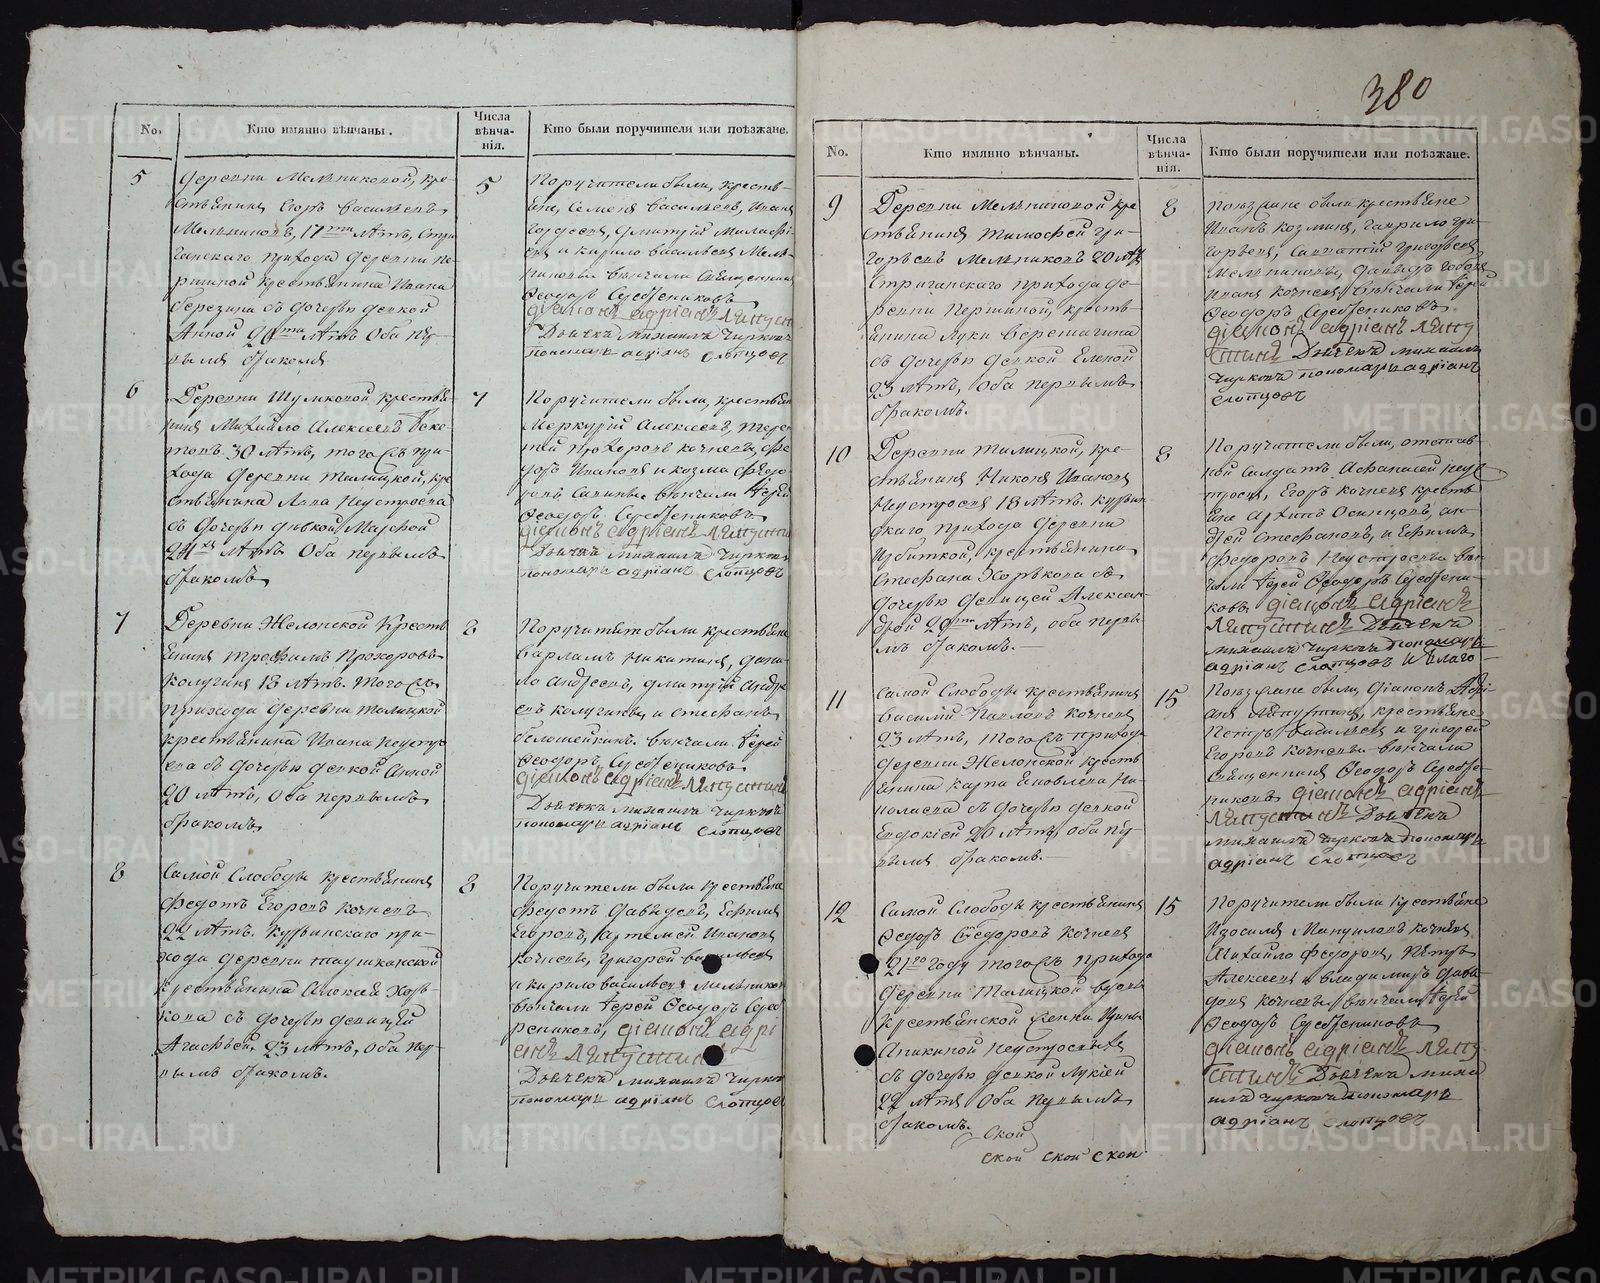 No.
Кто имянно вѣнчаны.
Числа
вѣнча-
нія.
Кто были поручители или поѣзжане.
5
Деревни Мельниковой, кре-
стьянинъ Егоръ Васильевъ
Мельниковъ, 17 лѣтъ,
прихода деревни
крестьянина Ивана
Березина съ дочерью девкой
Анной 20 лѣтъ Оба пер-
вымъ бракомъ
5
Поручители были, кресть-
яне, Семенъ Васильевъ, Иванъ
Гордеевъ, Дмитрій
и Кирило Васильевъ Мель-
никовы Венчали Священникъ
Феодоръ Серебрениковъ
діаконъ Адріанъ Ляпустинъ
Дьячекъ Михаилъ Чирковъ
пономарь Адріанъ Словцовъ
6
Деревни Шумковой крестья-
нинъ Михайло Алексеевъ
30 лѣтъ, того жъ при-
хода деревни Талицкой, кре-
стьянина Неустроева
съ дочерью девкой Марфой
24 лѣтъ Оба первымъ
бракомъ
7
Поручители были, крестьяне
Меркурій Алексеевъ, Терен-
тей Прохоровъ Кочневъ, Фе-
доръ Ивановъ и Козма Федо-
ровъ Венчали Іерей
Феодоръ Серебрениковъ
діаконъ Адріанъ Ляпустинъ
Дьячекъ Михаилъ Чирковъ
пономарь Адріанъ Словцовъ
7
Деревни Жеlonской Кресть-
янинъ Трефилъ Прохоровъ
Калугинъ 18 лѣтъ. Того жъ
прихода деревни Талицкой
крестьянина Ивана Неустро-
ева съ дочерью девкой Анной
20 лѣтъ, Оба первымъ
бракомъ
8
Поручители были крестьяне
Варламъ Никитинъ, Дани-
ло Андреевъ, Дмитрій Андре-
евъ Калугины, и Стефанъ
Белошейкинъ. Венчали Іерей
Феодоръ Серебрениковъ
діаконъ Адріанъ Ляпустинъ
Дьячекъ Михаилъ Чирковъ
пономарь Адріанъ Словцовъ
8
Самой Слободы крестьянинъ
Федотъ Егоровъ Кочневъ
22 лѣтъ. при-
хода деревни
крестьянина Алексѣя Хорь-
кова съ дочерью девицей
Агафьей, 23 лѣтъ, Оба пер-
вымъ бракомъ.
8
Поручители были крестьяне
Федотъ Давыдовъ, Ефимъ
Егоровъ, Артемей Ивановъ
Кочневы, Григорей Васильевъ
и Кирило Васильевъ Мельниковы
Венчали Іерей Феодоръ Сереб-
рениковъ, діаконъ Адрі-
анъ Ляпустинъ
Дьячекъ Михаилъ Чирковъ
пономарь Адріанъ Словцовъ
380
No.
Кто имянно вѣнчаны.
Числа
вѣнча-
нія.
Кто были поручители или поѣзжане.
9
Деревни Мельниковой кре-
стьянинъ Тимофей Гри-
горьевъ Мельниковъ 20 лѣтъ
прихода де-
ревни Першиной, кресть-
янина Луки Верещагина
съ дочерью девкой Еленой
23 лѣтъ, Оба первымъ
бракомъ.
8
Поезжане были крестьяне
Иванъ Козминъ, Гаврило Гри-
горьевъ, Савватій Григорьевъ
Мельниковы, Давыдъ
Иванъ Кочневы, Венчали Іерей
Феодоръ Серебрениковъ.
діаконъ Адріанъ Ляпу-
стинъ Дьячекъ Михаилъ
Чирковъ пономарь Адріанъ
Словцовъ
10
Деревни Талицкой, кре-
стьянинъ Никонъ Ивановъ
Неустроевъ 18 лѣтъ.
скаго прихода деревни
крестьянина
Стефана Хорькова съ
дочерью девицей Алексан-
дрой 20 лѣтъ, оба первы-
мъ бракомъ.
8
Поручители были, отстав-
ной Солдатъ Афанасей Неус-
троевъ, Егоръ Кочневъ кресть-
яне Архипъ Осинцовъ, Ан-
дрей Стефановъ, и Ефимъ
Федоровъ Неустроевы Вен-
чали Іерей Феодоръ Серебрени-
ковъ діаконъ Адріанъ
Ляпустинъ Дьячекъ
Михаилъ Чирковъ пономарь
Адріанъ Словцовъ
11
Самой Слободы крестьянинъ
Василій Павловъ Кочневъ
23 лѣтъ, того жъ прихода
деревни Желонской кресть-
янина Карпа Яковлева Ни-
колаева съ дочерью девкой
Евдокіей 20 лѣтъ, Оба пер-
вымъ бракомъ.
15
Поезжане были, діаконъ Адрі-
анъ Ляпустинъ, крестьяне
Петръ Васильевъ и Григорей
Егоровъ Кочневы Венчали
Священникъ Феодоръ Серебре-
никовъ діаконъ Адріанъ
Ляпустинъ Дьячекъ
Михаилъ Чирковъ пономарь
Адріанъ Словцовъ
12
Самой Слободы крестьянинъ
Федоръ Федоровъ Кочневъ
21 году того жъ прихода
деревни Талицкой вдовы
крестьянской женки Ирины
Аникиной Неустроевыхъ
съ дочерью девкой Лукіей
22 лѣтъ Оба первымъ
бракомъ.
15
Поручители были крестьяне
Изосимъ Мануиловъ Кочневъ
Михайло Федоровъ, Петръ
Алексеевъ и Владимиръ Давы-
довъ Кочневы, Венчали Іерей
Феодоръ Серебрениковъ
діаконъ Адріанъ Ляпу-
стинъ Дьячекъ Миха-
илъ Чирковъ пономарь
Адріанъ Словцовъ
Ской
Ской Ской Ской
METRIKI.GASO-URAL.RU